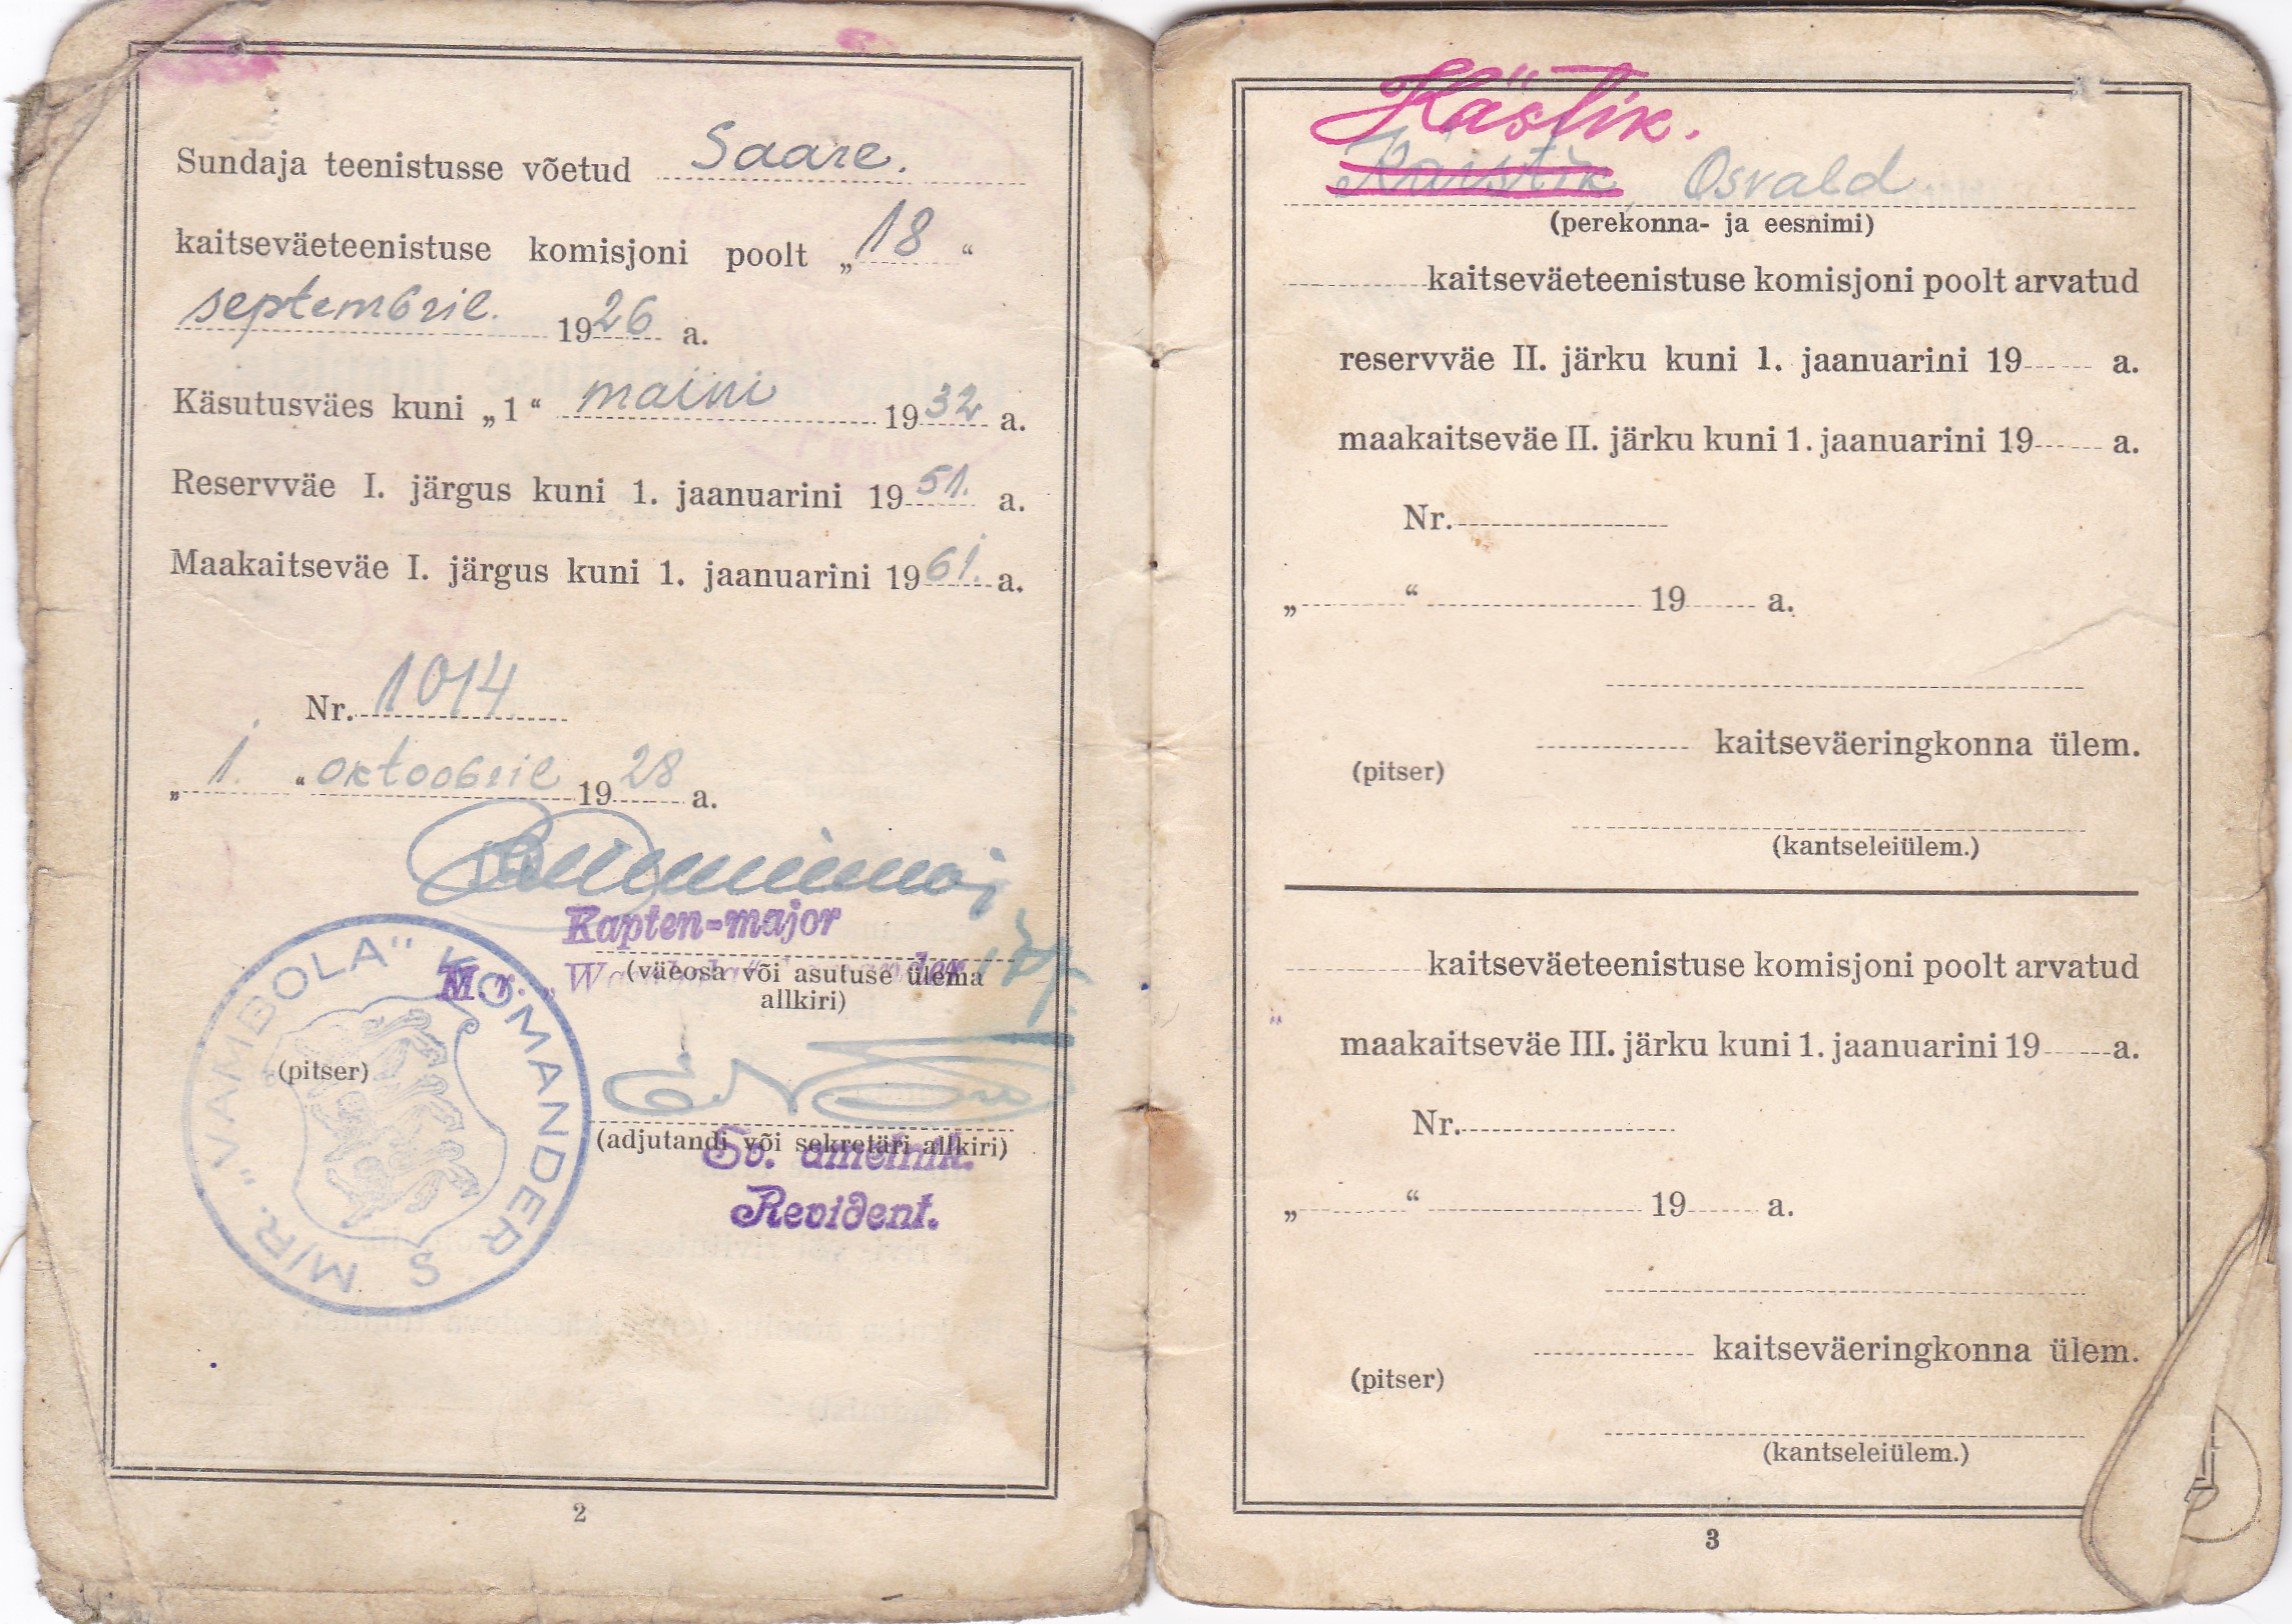 Sundaja teenistusse võetud Saare.
kaitseväeteenistuse komisjoni poolt „18“
septembril. 1926 a.
Käsutusväes kuni „1“ maini 1932 a.
Reservväe I. järgus kuni 1. jaanuarini 1951. a.
Maakaitseväe I. järgus kuni 1. jaanuarini 1961. a.
Nr. 1014
„1.“ oktoobril 1928 a.
Kapten-major
M. r. „Wambola“
(väeosa või asutuse ülema
allkiri)
(pitser)
M/R. "VAMBOLA" KOMANDER S
(adjutandi või sekretäri allkiri)
Sv. ametnik.
Revident.
2
Kästik.
Käistik Osvald
(perekonna- ja eesnimi)
kaitseväeteenistuse komisjoni poolt arvatud
reservväe II. järku kuni 1. jaanuarini 19 a.
maakaitseväe II. järku kuni 1. jaanuarini 19 a.
Nr.
„ “ 19 a.
kaitseväeringkonna ülem.
(pitser)
(kantseleiülem.)
kaitseväeteenistuse komisjoni poolt arvatud
maakaitseväe III. järku kuni 1. jaanuarini 19 a.
Nr.
„ “ 19 a.
kaitseväeringkonna ülem.
(pitser)
(kantseleiülem.)
3